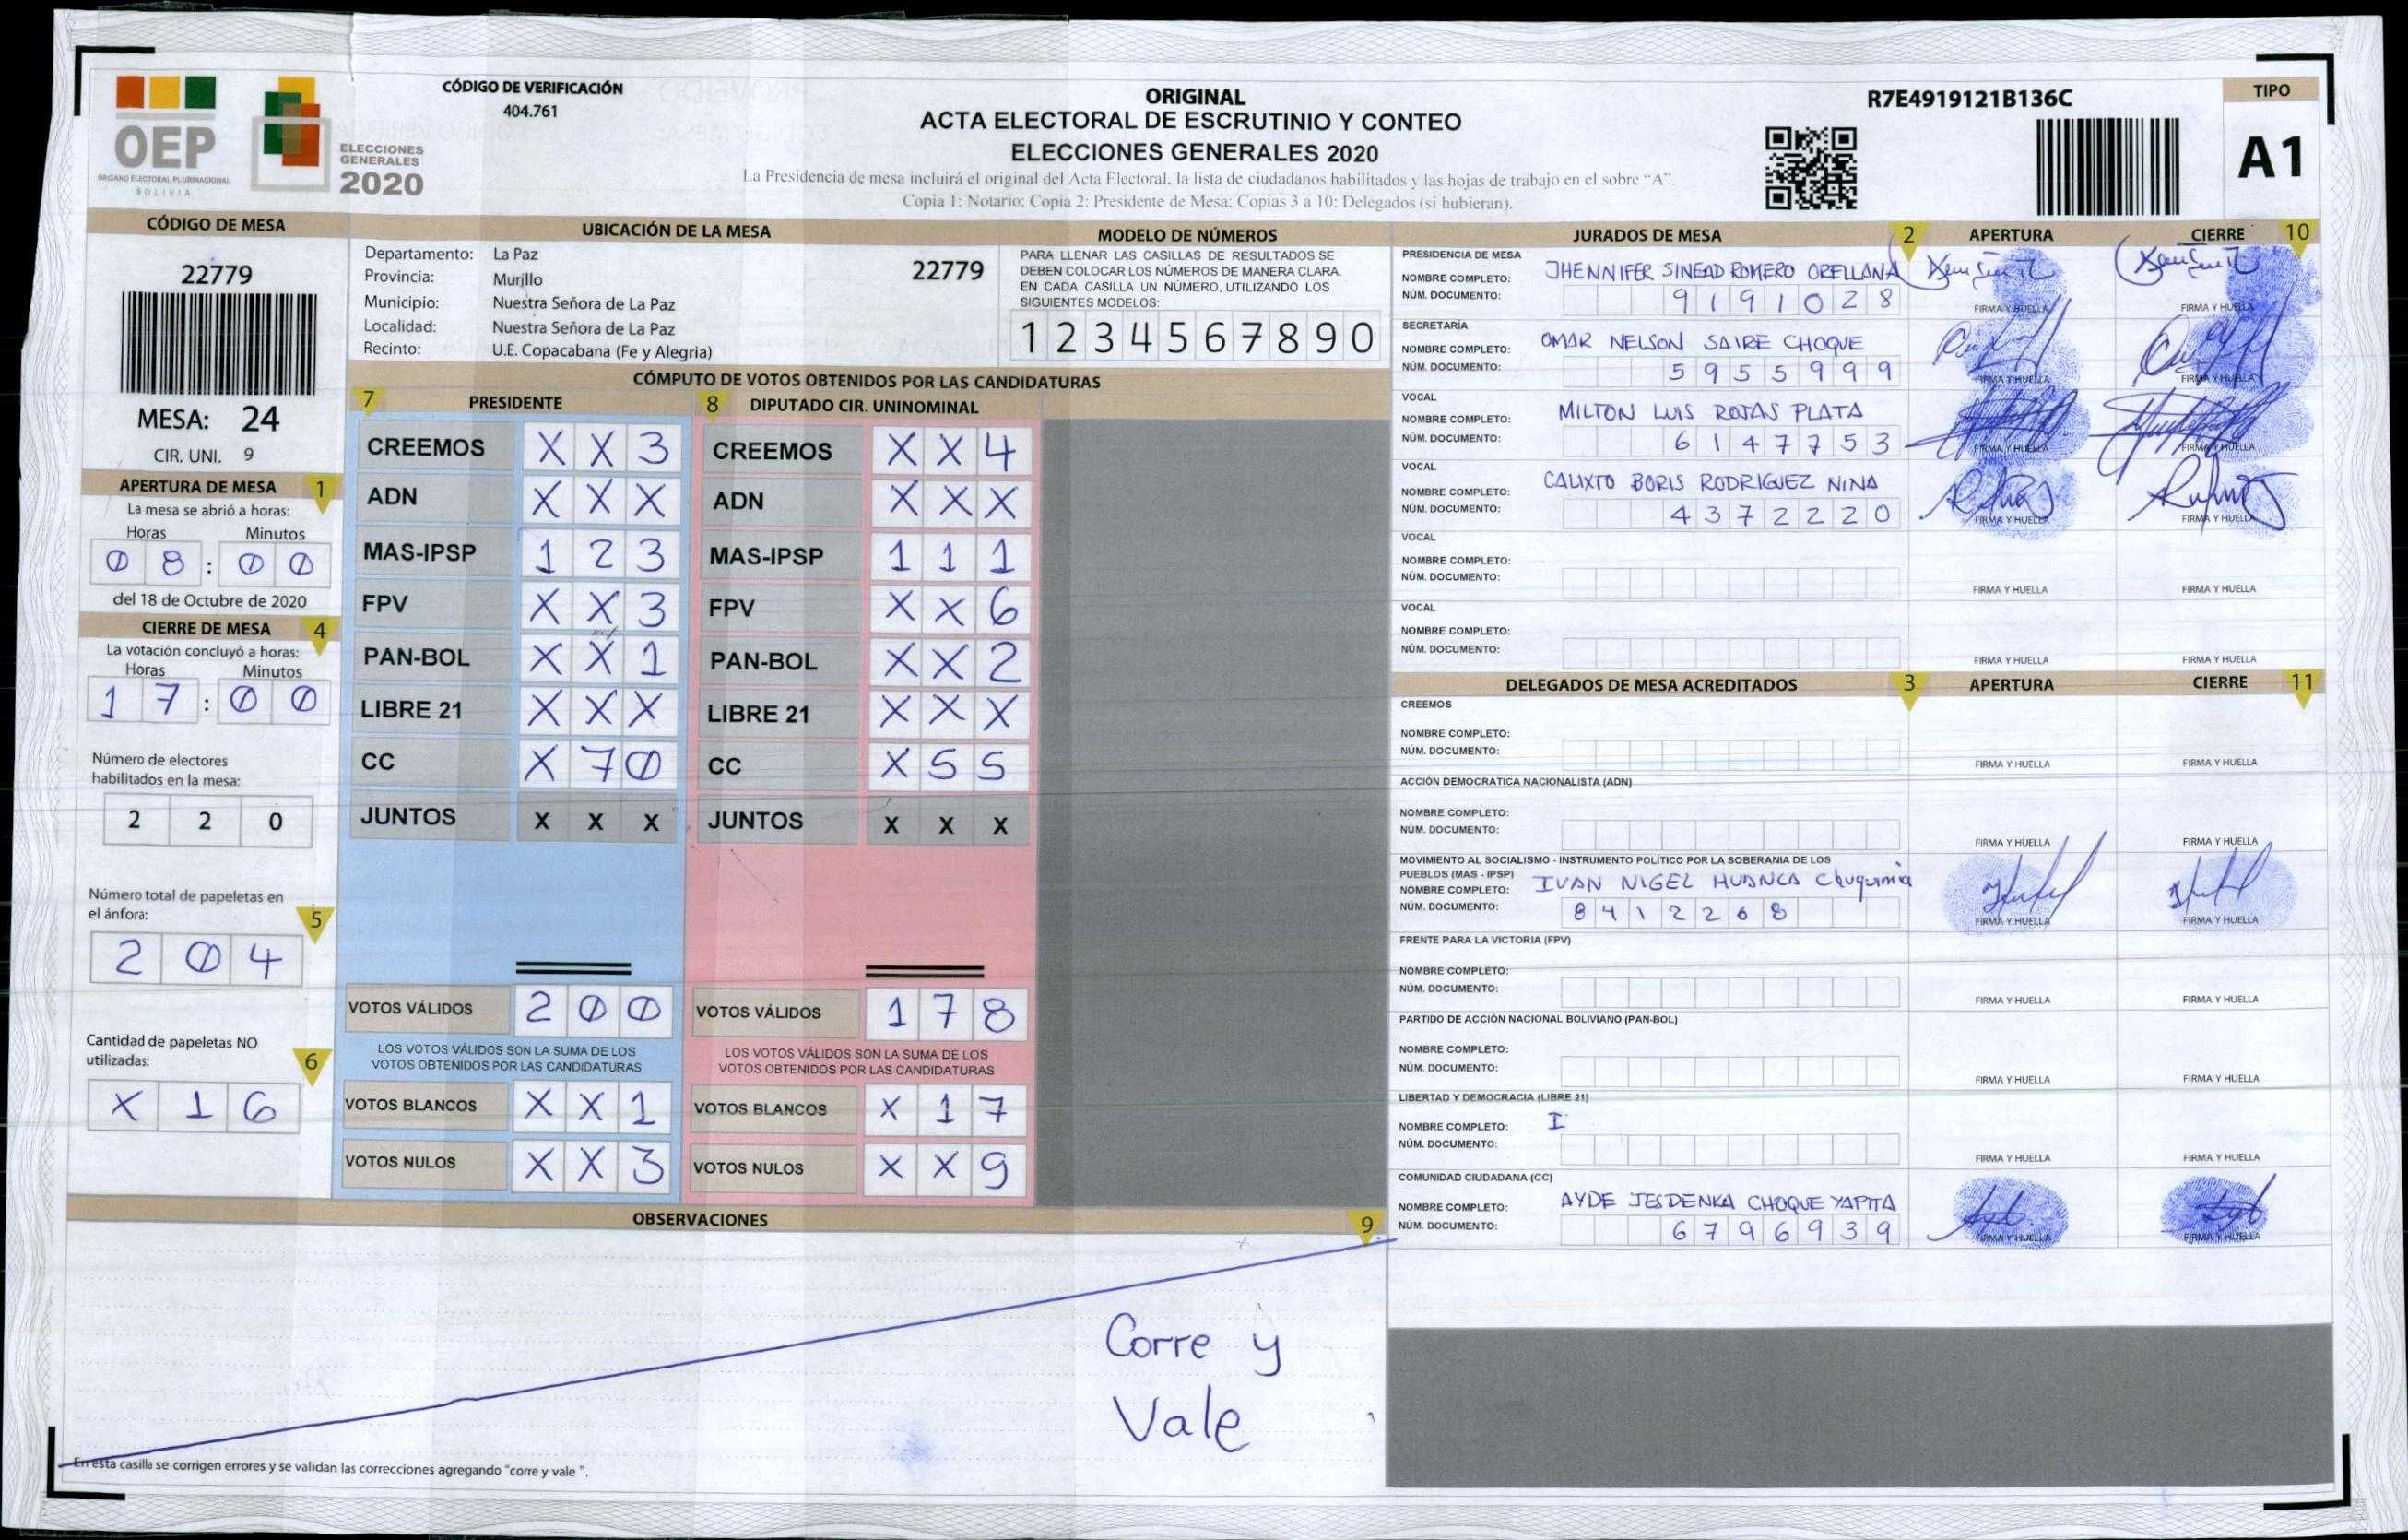 OEP
ÓRGANO ELECTORAL PLURINACIONAL
BOLIVIA
ELECCIONES
GENERALES
2020
CÓDIGO DE VERIFICACIÓN
404.761
ORIGINAL
ACTA ELECTORAL DE ESCRUTINIO Y CONTEO
ELECCIONES GENERALES 2020
La Presidencia de mesa incluirá el original del Acta Electoral, la lista de ciudadanos habilitados y las hojas de trabajo en el sobre “A”.
Copia 1: Notario: Copia 2: Presidente de Mesa: Copias 3 a 10: Delegados (si hubieran).
R7E4919121B136C
TIPO
A1
CÓDIGO DE MESA
22779
MESA: 24
CIR. UNI. 9
UBICACIÓN DE LA MESA
Departamento: La Paz
Provincia: Murillo
22779
Municipio: Nuestra Señora de La Paz
Localidad: Nuestra Señora de La Paz
Recinto: U.E. Copacabana (Fe y Alegria)
MODELO DE NÚMEROS
PARA LLENAR LAS CASILLAS DE RESULTADOS SE
DEBEN COLOCAR LOS NÚMEROS DE MANERA CLARA.
EN CADA CASILLA UN NÚMERO, UTILIZANDO LOS
SIGUIENTES MODELOS:
1 2 3 4 5 6 7 8 9 0
APERTURA DE MESA 1
La mesa se abrió a horas:
Horas Minutos
0 8 : 0 0
del 18 de Octubre de 2020
CIERRE DE MESA 4
La votación concluyó a horas:
Horas Minutos
1 7 : 0 0
Número de electores
habilitados en la mesa:
2 2 0
Número total de papeletas en
el ánfora: 5
2 0 4
Cantidad de papeletas NO
utilizadas: 6
X 1 6
CÓMPUTO DE VOTOS OBTENIDOS POR LAS CANDIDATURAS
7 PRESIDENTE
CREEMOS X X 3
ADN X X X
MAS-IPSP 1 2 3
FPV X X 3
PAN-BOL X X 1
LIBRE 21 X X X
CC X 7 0
JUNTOS X X X
VOTOS VÁLIDOS 2 0 0
LOS VOTOS VÁLIDOS SON LA SUMA DE LOS
VOTOS OBTENIDOS POR LAS CANDIDATURAS
VOTOS BLANCOS X X 1
VOTOS NULOS X X 3
8 DIPUTADO CIR. UNINOMINAL
CREEMOS X X 4
ADN X X X
MAS-IPSP 1 1 1
FPV X X 6
PAN-BOL X X 2
LIBRE 21 X X X
CC X 5 5
JUNTOS X X X
VOTOS VÁLIDOS 1 7 8
LOS VOTOS VÁLIDOS SON LA SUMA DE LOS
VOTOS OBTENIDOS POR LAS CANDIDATURAS
VOTOS BLANCOS X 1 7
VOTOS NULOS X X 9
OBSERVACIONES 9
Corre y
Vale
En esta casilla se corrigen errores y se validan las correcciones agregando "corre y vale ".
JURADOS DE MESA 2 APERTURA CIERRE 10
PRESIDENCIA DE MESA
NOMBRE COMPLETO: JHENNIFER SINEAD ROMERO ORELLANA
NÚM. DOCUMENTO: 9 1 9 1 0 2 8
FIRMA Y HUELLA FIRMA Y HUELLA
SECRETARÍA
NOMBRE COMPLETO: OMAR NELSON SAIRE CHOQUE
NÚM. DOCUMENTO: 5 9 5 5 9 9 9
FIRMA Y HUELLA FIRMA Y HUELLA
VOCAL
NOMBRE COMPLETO: MILTON LUIS ROJAS PLATA
NÚM. DOCUMENTO: 6 1 4 7 7 5 3
FIRMA Y HUELLA FIRMA Y HUELLA
VOCAL
NOMBRE COMPLETO: CALIXTO BORIS RODRIGUEZ NINA
NÚM. DOCUMENTO: 4 3 7 2 2 2 0
FIRMA Y HUELLA FIRMA Y HUELLA
VOCAL
NOMBRE COMPLETO:
NÚM. DOCUMENTO:
FIRMA Y HUELLA FIRMA Y HUELLA
VOCAL
NOMBRE COMPLETO:
NÚM. DOCUMENTO:
FIRMA Y HUELLA FIRMA Y HUELLA
DELEGADOS DE MESA ACREDITADOS 3 APERTURA CIERRE 11
CREEMOS
NOMBRE COMPLETO:
NÚM. DOCUMENTO:
FIRMA Y HUELLA FIRMA Y HUELLA
ACCIÓN DEMOCRÁTICA NACIONALISTA (ADN)
NOMBRE COMPLETO:
NÚM. DOCUMENTO:
FIRMA Y HUELLA FIRMA Y HUELLA
MOVIMIENTO AL SOCIALISMO - INSTRUMENTO POLÍTICO POR LA SOBERANIA DE LOS
PUEBLOS (MAS - IPSP)
NOMBRE COMPLETO: IVAN NIGEL HUANCA Chuquimia
NÚM. DOCUMENTO: 8 4 1 2 2 6 8
FIRMA Y HUELLA FIRMA Y HUELLA
FRENTE PARA LA VICTORIA (FPV)
NOMBRE COMPLETO:
NÚM. DOCUMENTO:
FIRMA Y HUELLA FIRMA Y HUELLA
PARTIDO DE ACCIÓN NACIONAL BOLIVIANO (PAN-BOL)
NOMBRE COMPLETO:
NÚM. DOCUMENTO:
FIRMA Y HUELLA FIRMA Y HUELLA
LIBERTAD Y DEMOCRACIA (LIBRE 21)
NOMBRE COMPLETO: I
NÚM. DOCUMENTO:
FIRMA Y HUELLA FIRMA Y HUELLA
COMUNIDAD CIUDADANA (CC)
NOMBRE COMPLETO: AYDE JESDENKA CHOQUE YAPITA
NÚM. DOCUMENTO: 6 7 9 6 9 3 9
FIRMA Y HUELLA FIRMA Y HUELLA